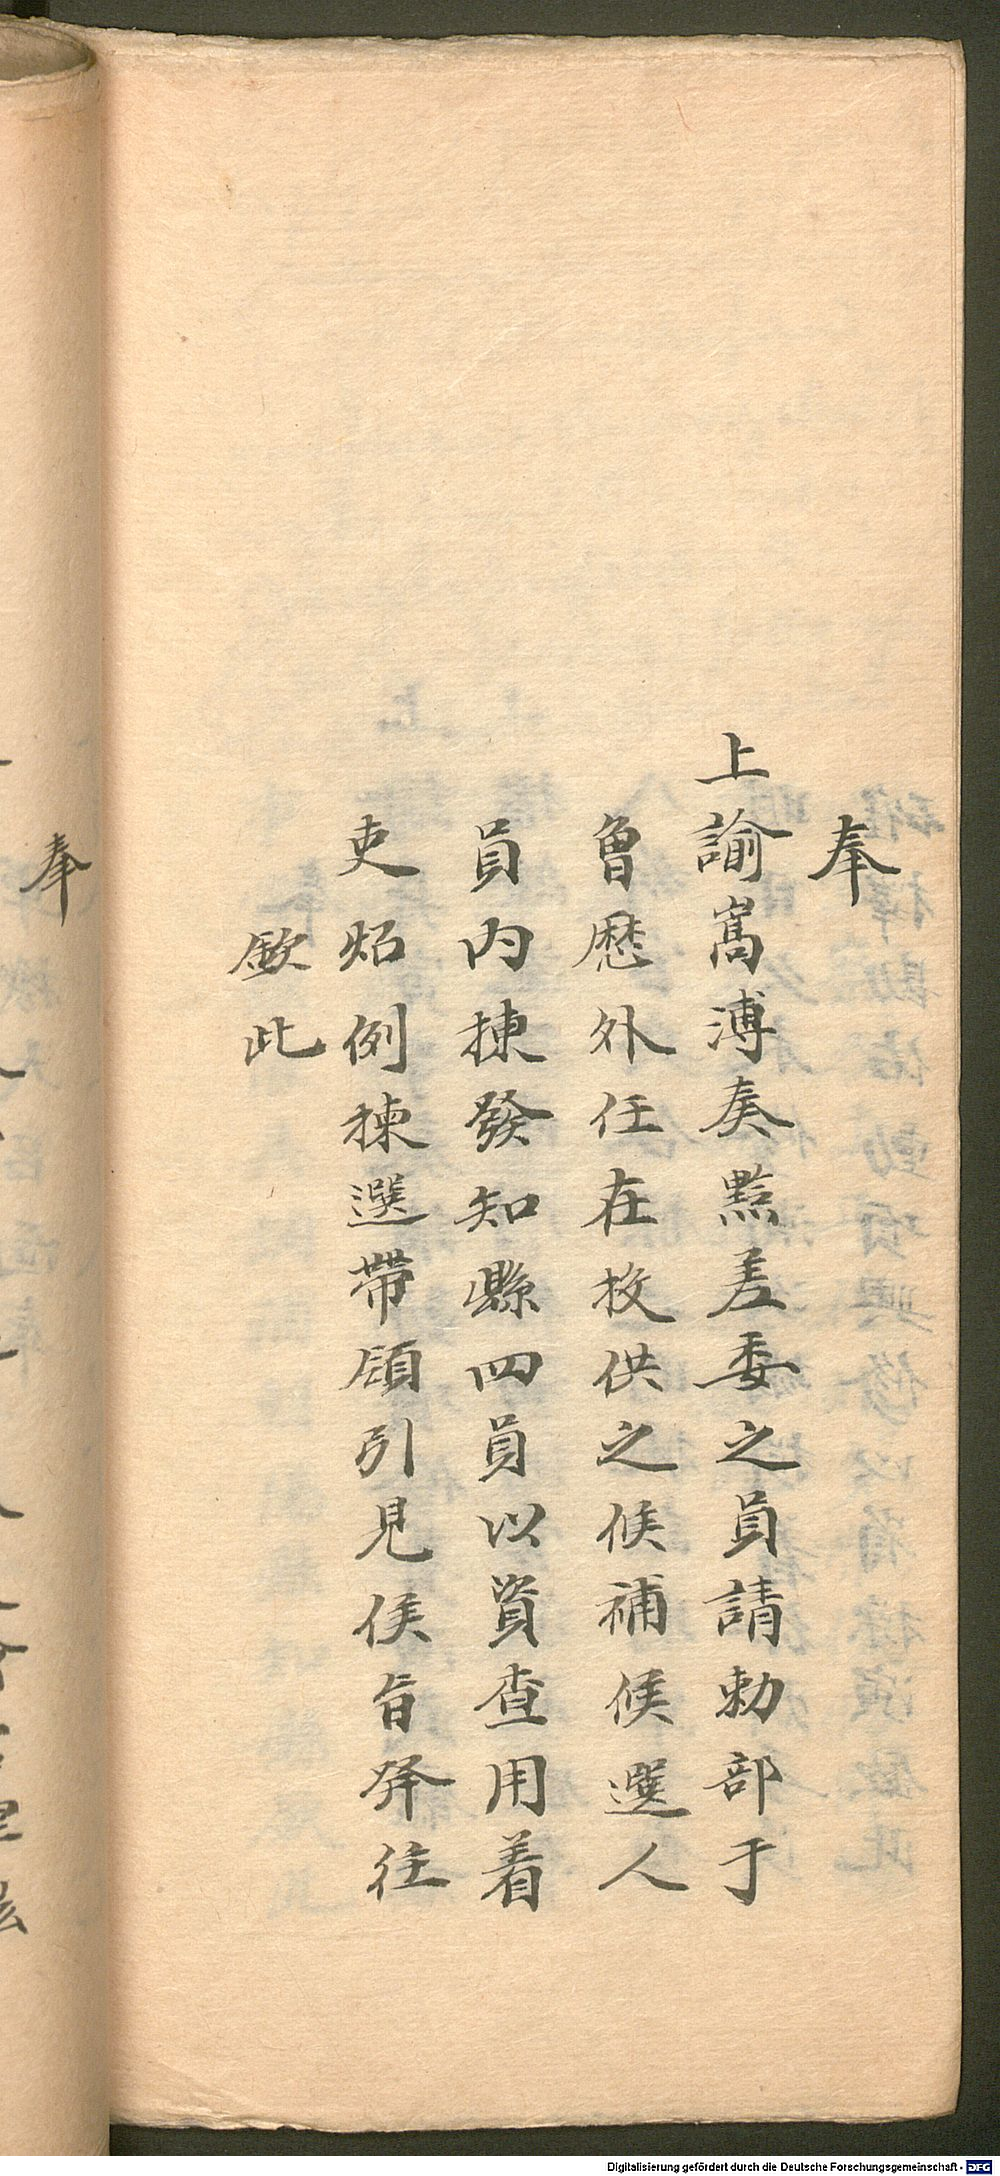 奉
上諭嵩溥奏點差委之員請勅部于
曾歷外任在校供之候補候選人
員內揀發知縣四員以資查用着
吏炤例揀選帶領引見侯旨發往
欽此
奉
Digitalisierung gefördert durch die Deutsche Forschungsgemeinschaft - DFG